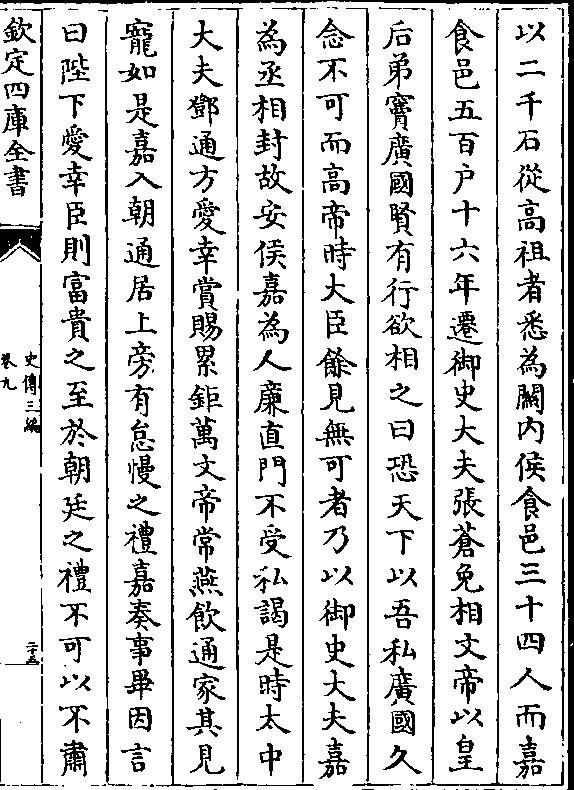 以二千石從高祖者悉為關内侯食邑三十四人而嘉
食邑五百户十六年遷御史大夫張蒼免相文帝以皇
后弟竇廣國賢有行欲相之曰恐天下以吾私廣國久
念不可而高帝時大臣餘見無可者乃以御史大夫嘉
為丞相封故安侯嘉為人廉直門不受私謁是時太中
大夫鄧通方愛幸賞賜累鉅萬文帝常燕飲通家其見
寵如是嘉入朝通居上旁有怠慢之禮嘉奏事畢因言
曰陛下愛幸臣則富貴之至於朝廷之禮不可以不肅
欽定四庫全書
史傳三編
卷九
二十五